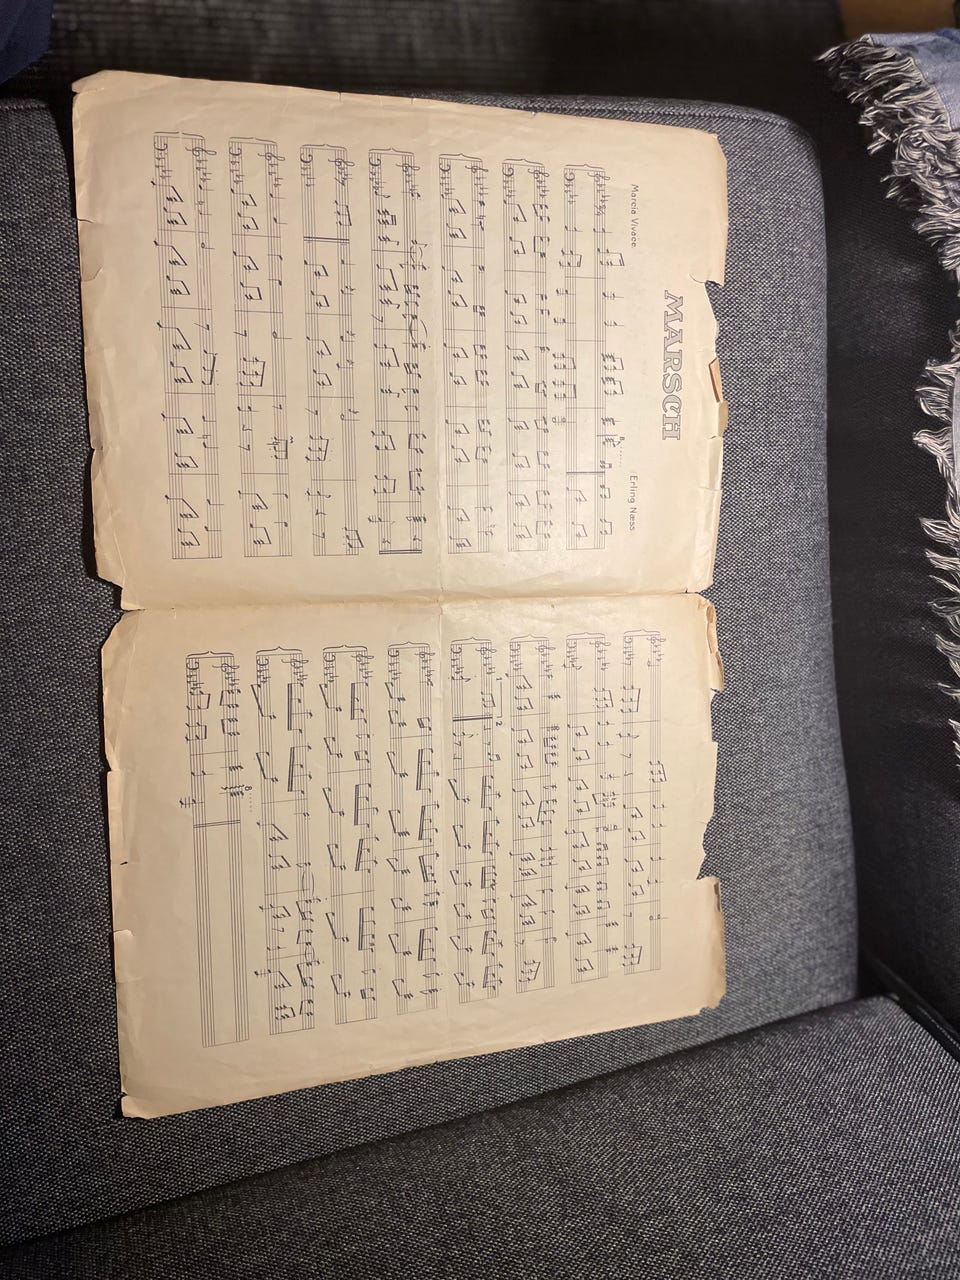 MARSCH
Marcia Vivace.
Erling Næss.
8.....
1.
2
8....